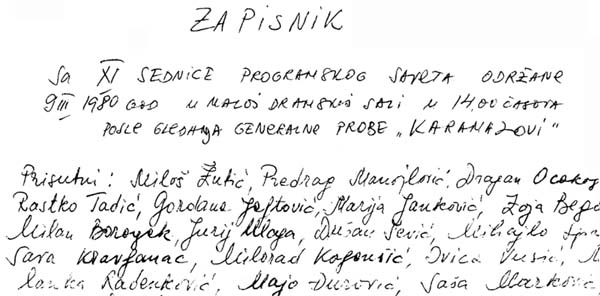 ZAPISNIK
Sa XI SEDNICE PROGRAMSKOG SAVETA ODRŽANE
9 III 1980 GOD U MALOJ DRAMSKOJ SALI U 14,00 ČASOVA
POSLE GLEDANJA GENERALNE PROBE „KARAMAZOVI"
Prisutni: Miloš Žutić, Predrag Manojlović, Dragan Ocokol
Rastko Tadić, Gordana Jeftović, Marija Janković, Zoja
Milan Jurij Dušan Jević, Mihajlo
Sara Milorad Ivica
Radenković, Majo Đurović, Saša Marković,